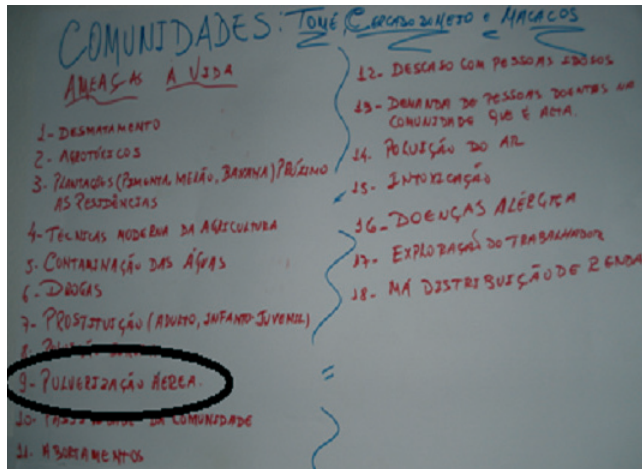 COMUNIDADES: TOMÉ, CERCADO DO MEIO E MACACOS
AMEAÇAS A VIDA
1- DESMATAMENTO
2- AGROTÓXICOS
3- PLANTAÇÕES (PIMENTA, MELÃO, BANANA) PRÓXIMO
AS RESIDÊNCIAS
4- TÉCNICAS MODERNA DA AGRICULTURA
5- CONTAMINAÇÃO DAS ÁGUAS
6- DROGAS
7- PROSTITUIÇÃO (ADULTO, INFANTO-JUVENIL)
8-
9- PULVERIZAÇÃO AÉREA.
10- DA COMUNIDADE
11- ABORTAMENTOS
12- DESCASO COM PESSOAS IDOSOS
13- DEMANDA DE PESSOAS DOENTES NA
COMUNIDADE QUE É ALTA.
14- POLUIÇÃO DO AR
15- INTOXICAÇÃO
16- DOENÇAS ALÉRGICA
17- EXPLORAÇÃO DO TRABALHADOR
18- MÁ DISTRIBUIÇÃO DE RENDA